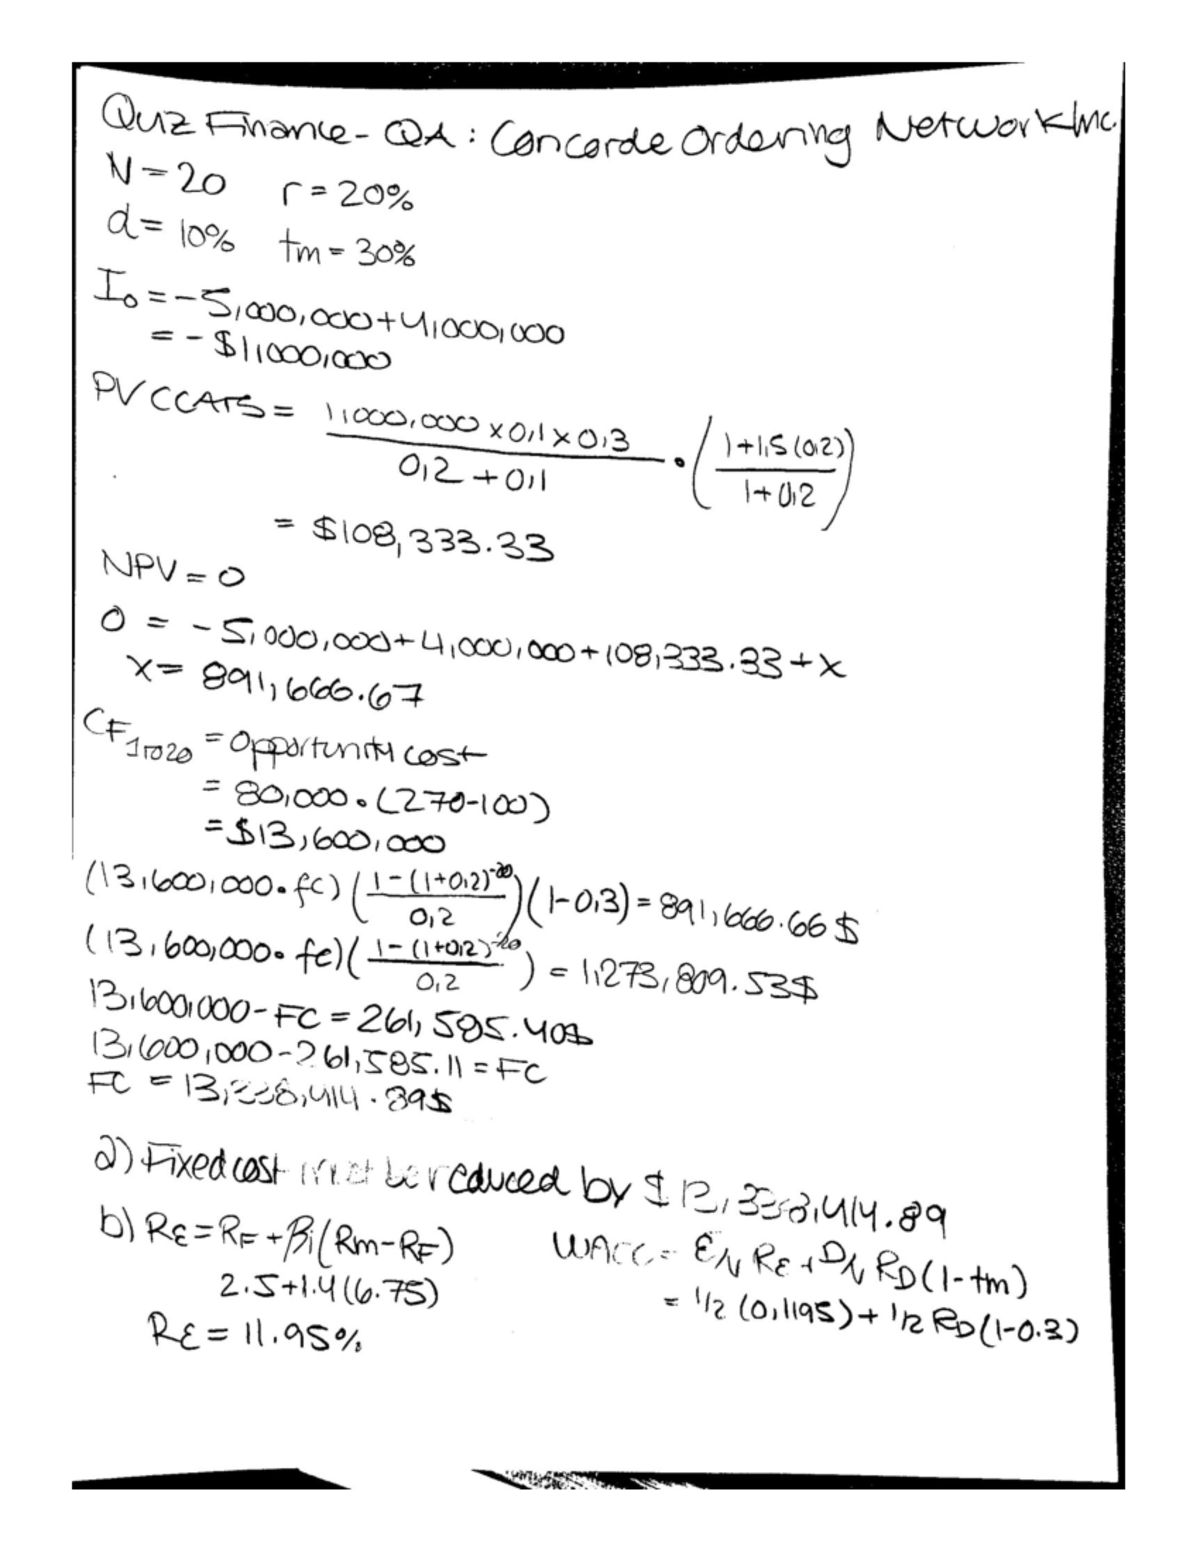 Quiz Finance - QA : Concorde Ordering Network Inc.
N = 20 r = 20%
d = 10% tm = 30%
I₀ = -5,000,000 + 4,000,000
= - $1,000,000
PV CCATS = 1,000,000 x 0,1 x 0,3 / 0,2 + 0,1 · (1 + 1,5 (0,2) / 1 + 0,2)
= $108,333.33
NPV = 0
0 = -5,000,000 + 4,000,000 + 108,333.33 + x
x = 891,666.67
CF 1 to 20 = Opportunity cost
= 80,000 · (270-100)
= $13,600,000
(13,600,000 · fc) (1 - (1+0,2)⁻²⁰ / 0,2) (1-0,3) = 891,666.66 $
(13,600,000 · fc) (1 - (1+0,2)⁻²⁰ / 0,2) = 1,273,809.53$
13,600,000 - FC = 261,585.40$
13,600,000 - 261,585.11 = FC
FC = 13,338,414.89$
a) Fixed cost must be reduced by $ 13,338,414.89
b) RE = RF + βi (Rm - RF) WACC = E/V RE + D/V RD (1-tm)
2.5 + 1.4 (6.75) = 1/2 (0,1195) + 1/2 RD (1-0.3)
RE = 11.95%